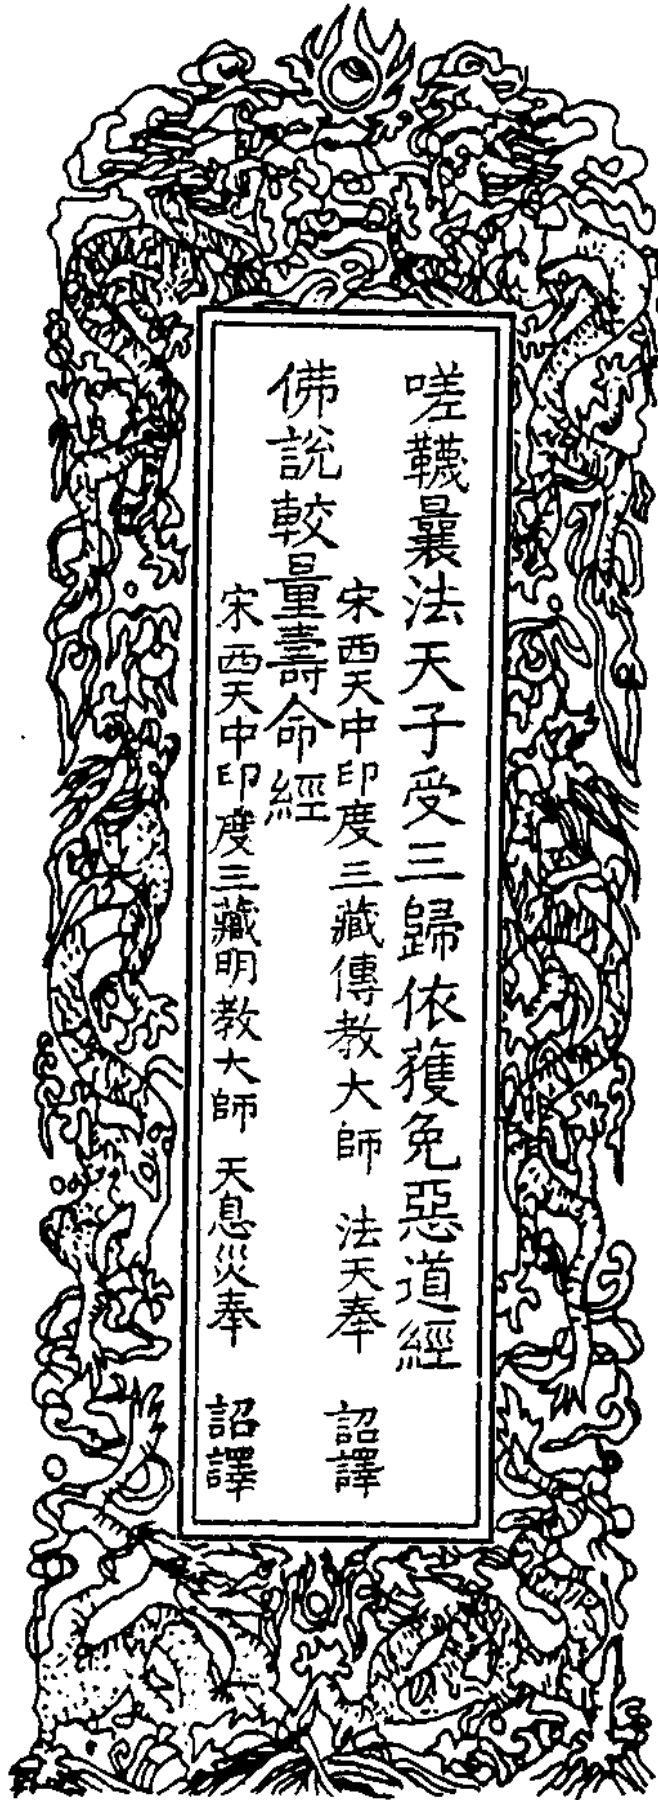 嗟韈曩法天子受三歸依獲免惡道經
宋西天中印度三藏傳教大師 法天奉 詔譯
佛說較量壽命經
宋西天中印度三藏明教大師 天息災奉 詔譯